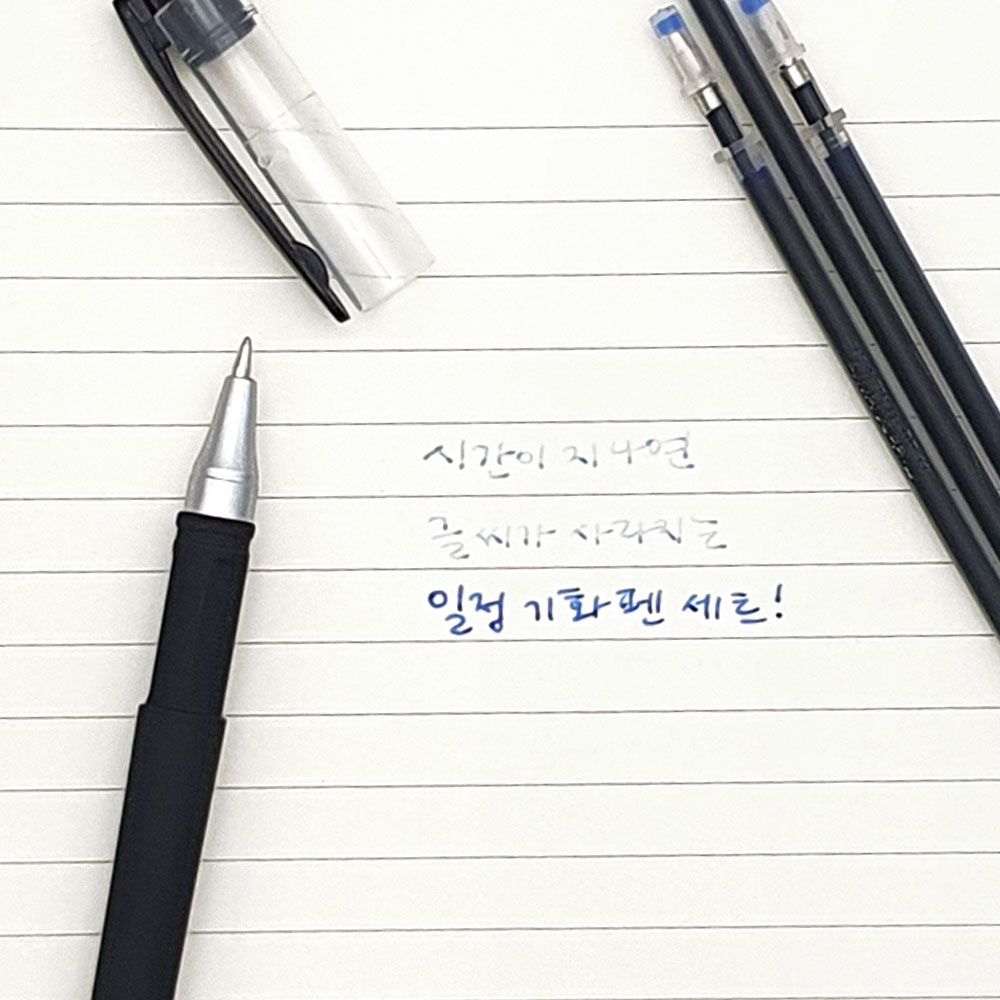 시간이 지나면
글씨가 사라지는
일정 기화펜 세트!